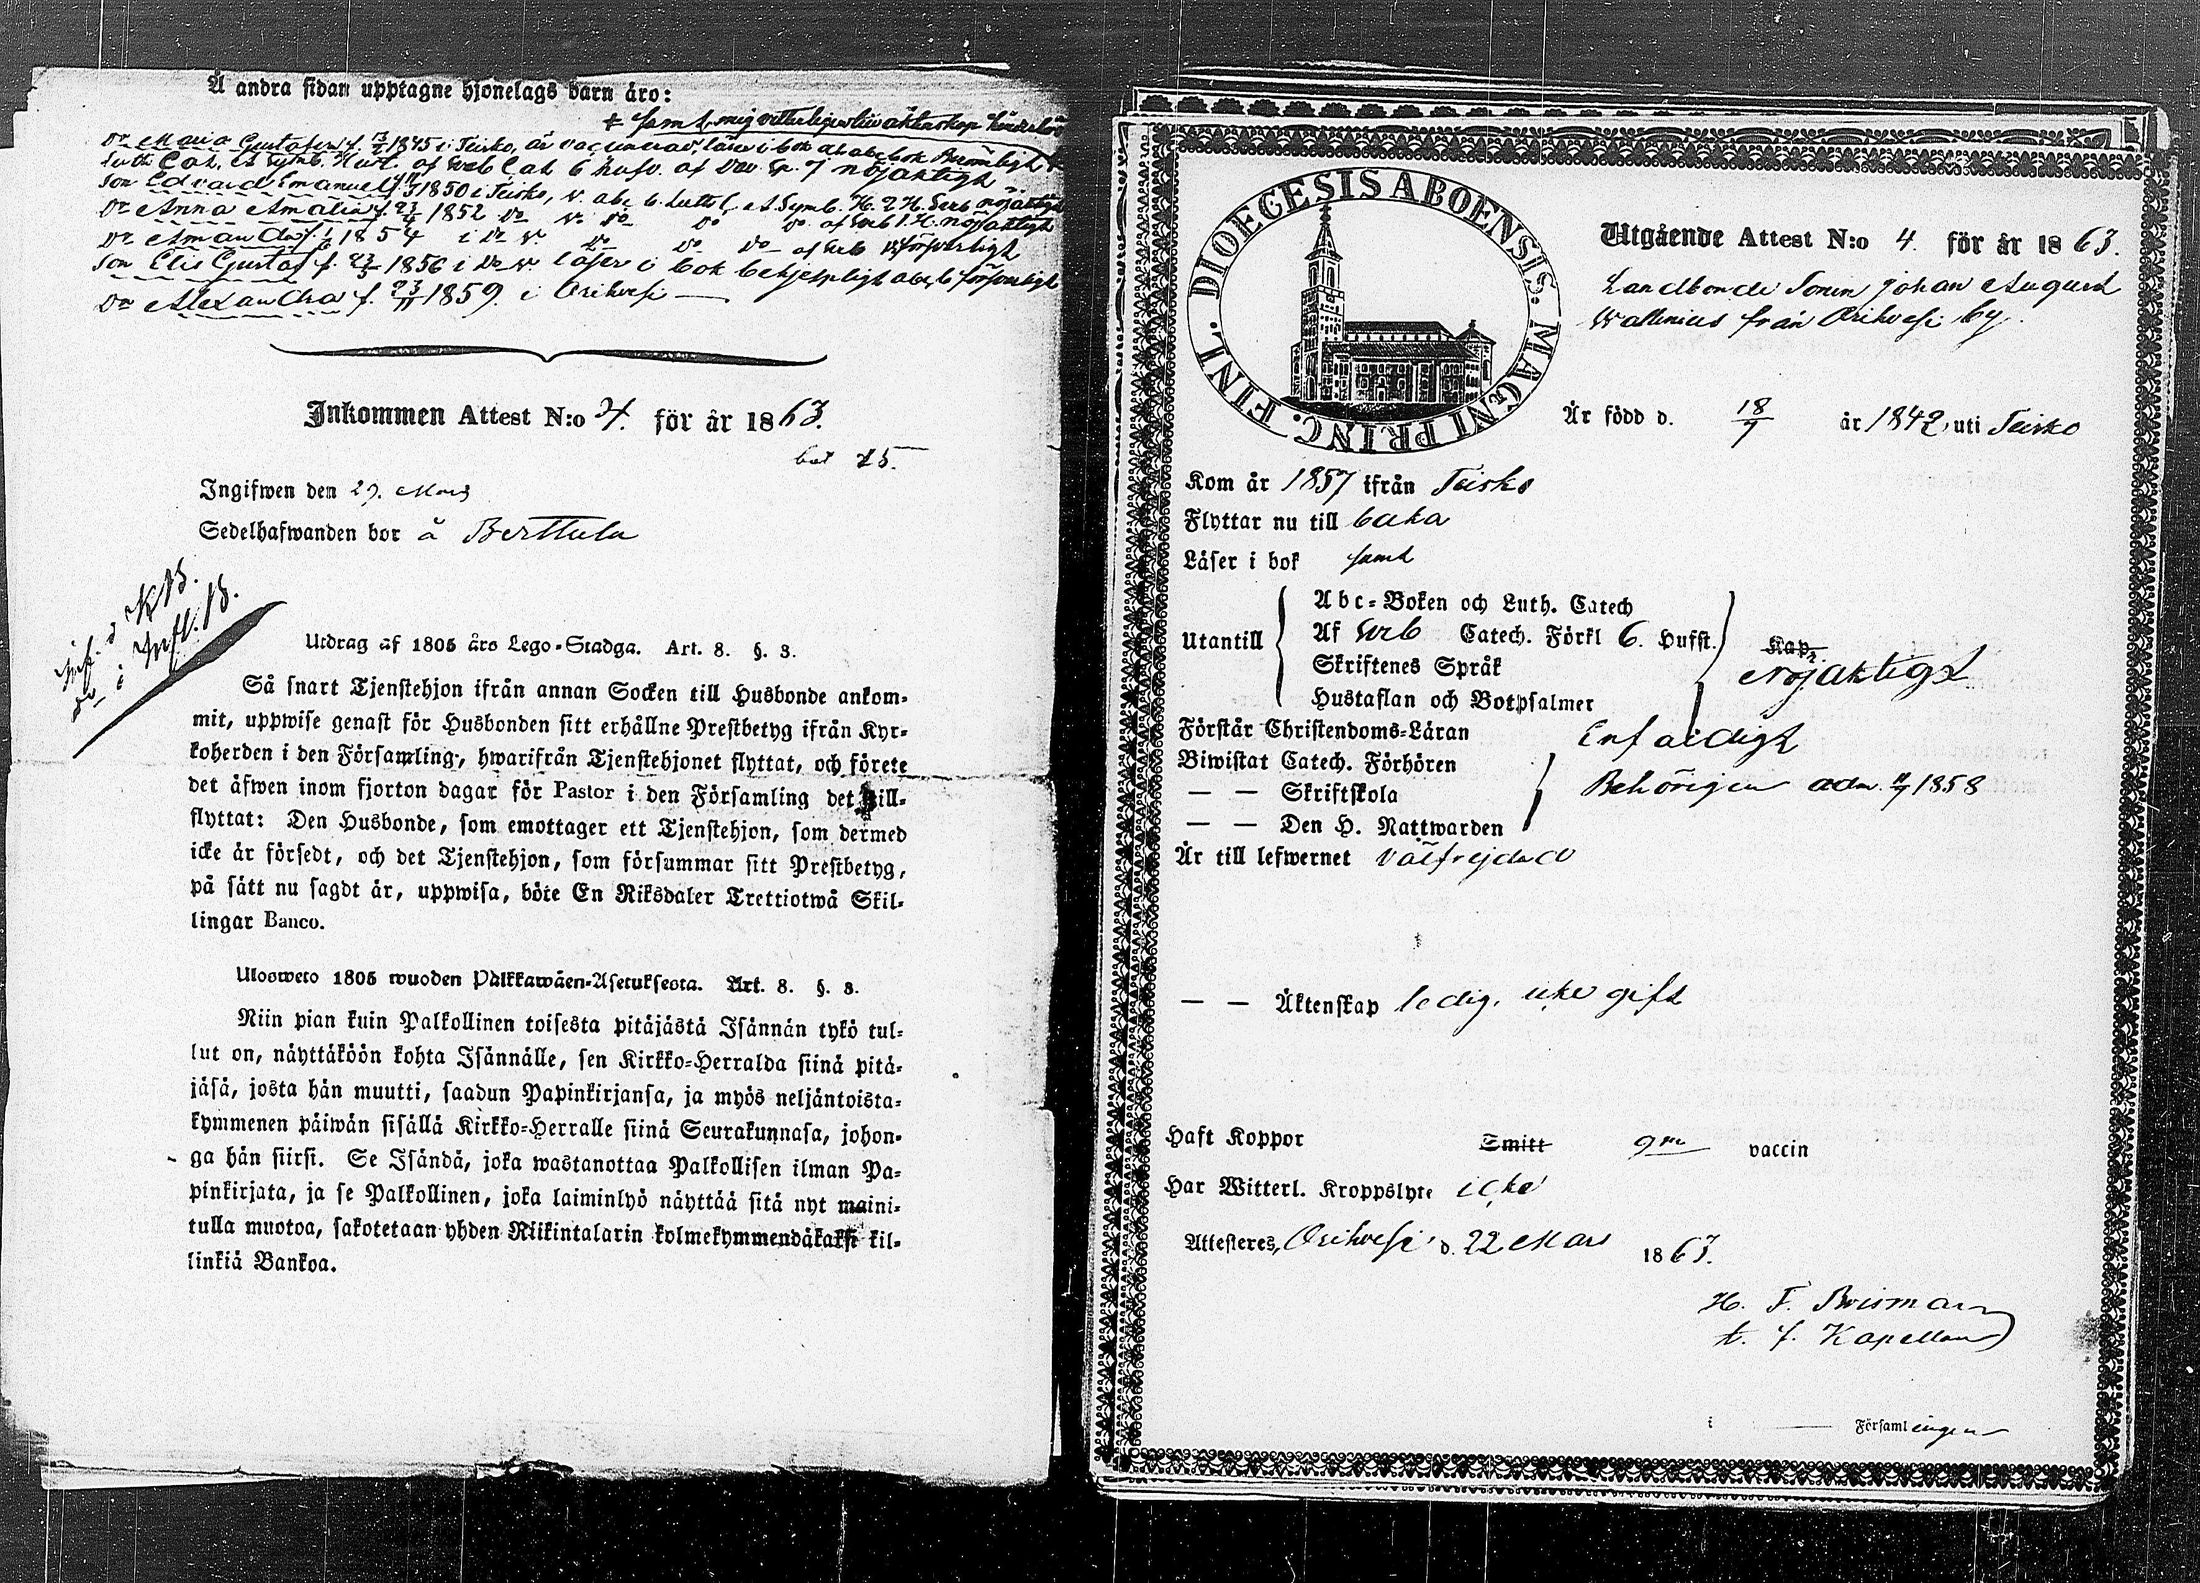 Å andra sidan upptagne hjonelags barn äro:
+ samt mig vitterligen till äktenskap hinderlös
Dr Maria Gustafva f. 1845 i Teisko, är vaccinerad, läser i bok
Luth Cat. 6 hufv. nöjaktigt
Son Edvard Emanuel 1850 i Teisko, v. abc b. Luth C. A. Symb. H. T. H. Sveb nöjaktigt
Dr Anna Amalia f. 1852 Do v. Do Do Do af Sveb nöjaktigt
Dr Amanda f. 1854 i Do v. Do Do Do af Sveb försvarligt
Son Elis Gustaf f. 1856 i Do v. läser i bok behjelpligt abc b försvarligt
Dr Alexandra f. 23/11 1859. i Orihvesi —
Inkommen Attest N:o 4. för år 1863.
bet 25.
Ingifwen den 29. Mars
Sedelhafwanden bor å Berttula
inf. i KB.
Do i Infl. B.
Utdrag af 1805 års Lego-Stadga. Art. 8. §. 8.
Så snart Tjenstehjon ifrån annan Socken till Husbonde ankom-
mit, uppwise genast för Husbonden sitt erhållne Prestbetyg ifrån Kyr-
koherden i den Församling, hwarifrån Tjenstehjonet flyttat, och förete
det äfwen inom fjorton dagar för Pastor i den Församling det till-
flyttat: Den Husbonde, som emottager ett Tjenstehjon, som dermed
icke är försedt, och det Tjenstehjon, som försummar sitt Prestbetyg,
på sätt nu sagdt är, uppwisa, böte En Riksdaler Trettiotwå Skil-
lingar Banco.
Ulosweto 1805 wuoden Palkkawäen-Asetuksesta. Art. 8. §. 8.
Niin pian kuin Palkollinen toisesta pitäjästä Isännän tykö tul-
lut on, näyttäköön kohta Isännälle, sen Kirkko-Herralda siinä pitä-
jäsä, josta hän muutti, saadun Papinkirjansa, ja myös neljäntoista-
kymmenen päiwän sisällä Kirkko-Herralle siinä Seurakunnasa, johon-
ga hän siirsi. Se Isändä, joka wastanottaa Palkollisen ilman Pa-
pinkirjata, ja se Palkollinen, joka laiminlyö näyttää sitä nyt maini-
tulla muotoa, sakotetaan yhden Riikintalarin kolmekymmendäkaksi kil-
linkiä Bankoa.
DIOECESIS ABOENSIS. MAGNI PRINC. FINL.
Utgående Attest N:o 4. för år 1863.
Landbonde Sonen Johan August
Wallenius från Orihvesi by.
Är född d. 18/7 år 1842, uti Teisko
Kom år 1857 ifrån Teisko
Flyttar nu till baka
Läser i bok samt
Utantill
Abc-Boken och Luth. Catech
Af Sveb Catech. Förkl 6. Hufst. Kap.
Skriftenes Språk nöjaktigt
Hustaflan och Botpsalmer
Förstår Christendoms-Läran Enfaldigt
Biwistat Catech. Förhören
— — Skriftskola Behörigen adm. 1858
— — Den H. Nattwarden
Är till lefwernet välfrejdad
— — Äktenskap ledig, icke gift
Haft Koppor Smitt gm vaccin
Har Witterl. Kroppslyte icke
Attesteres, Orihvesi d. 22 Mars 1863.
H. F.
t. f. Kapellan
i — Församlingen